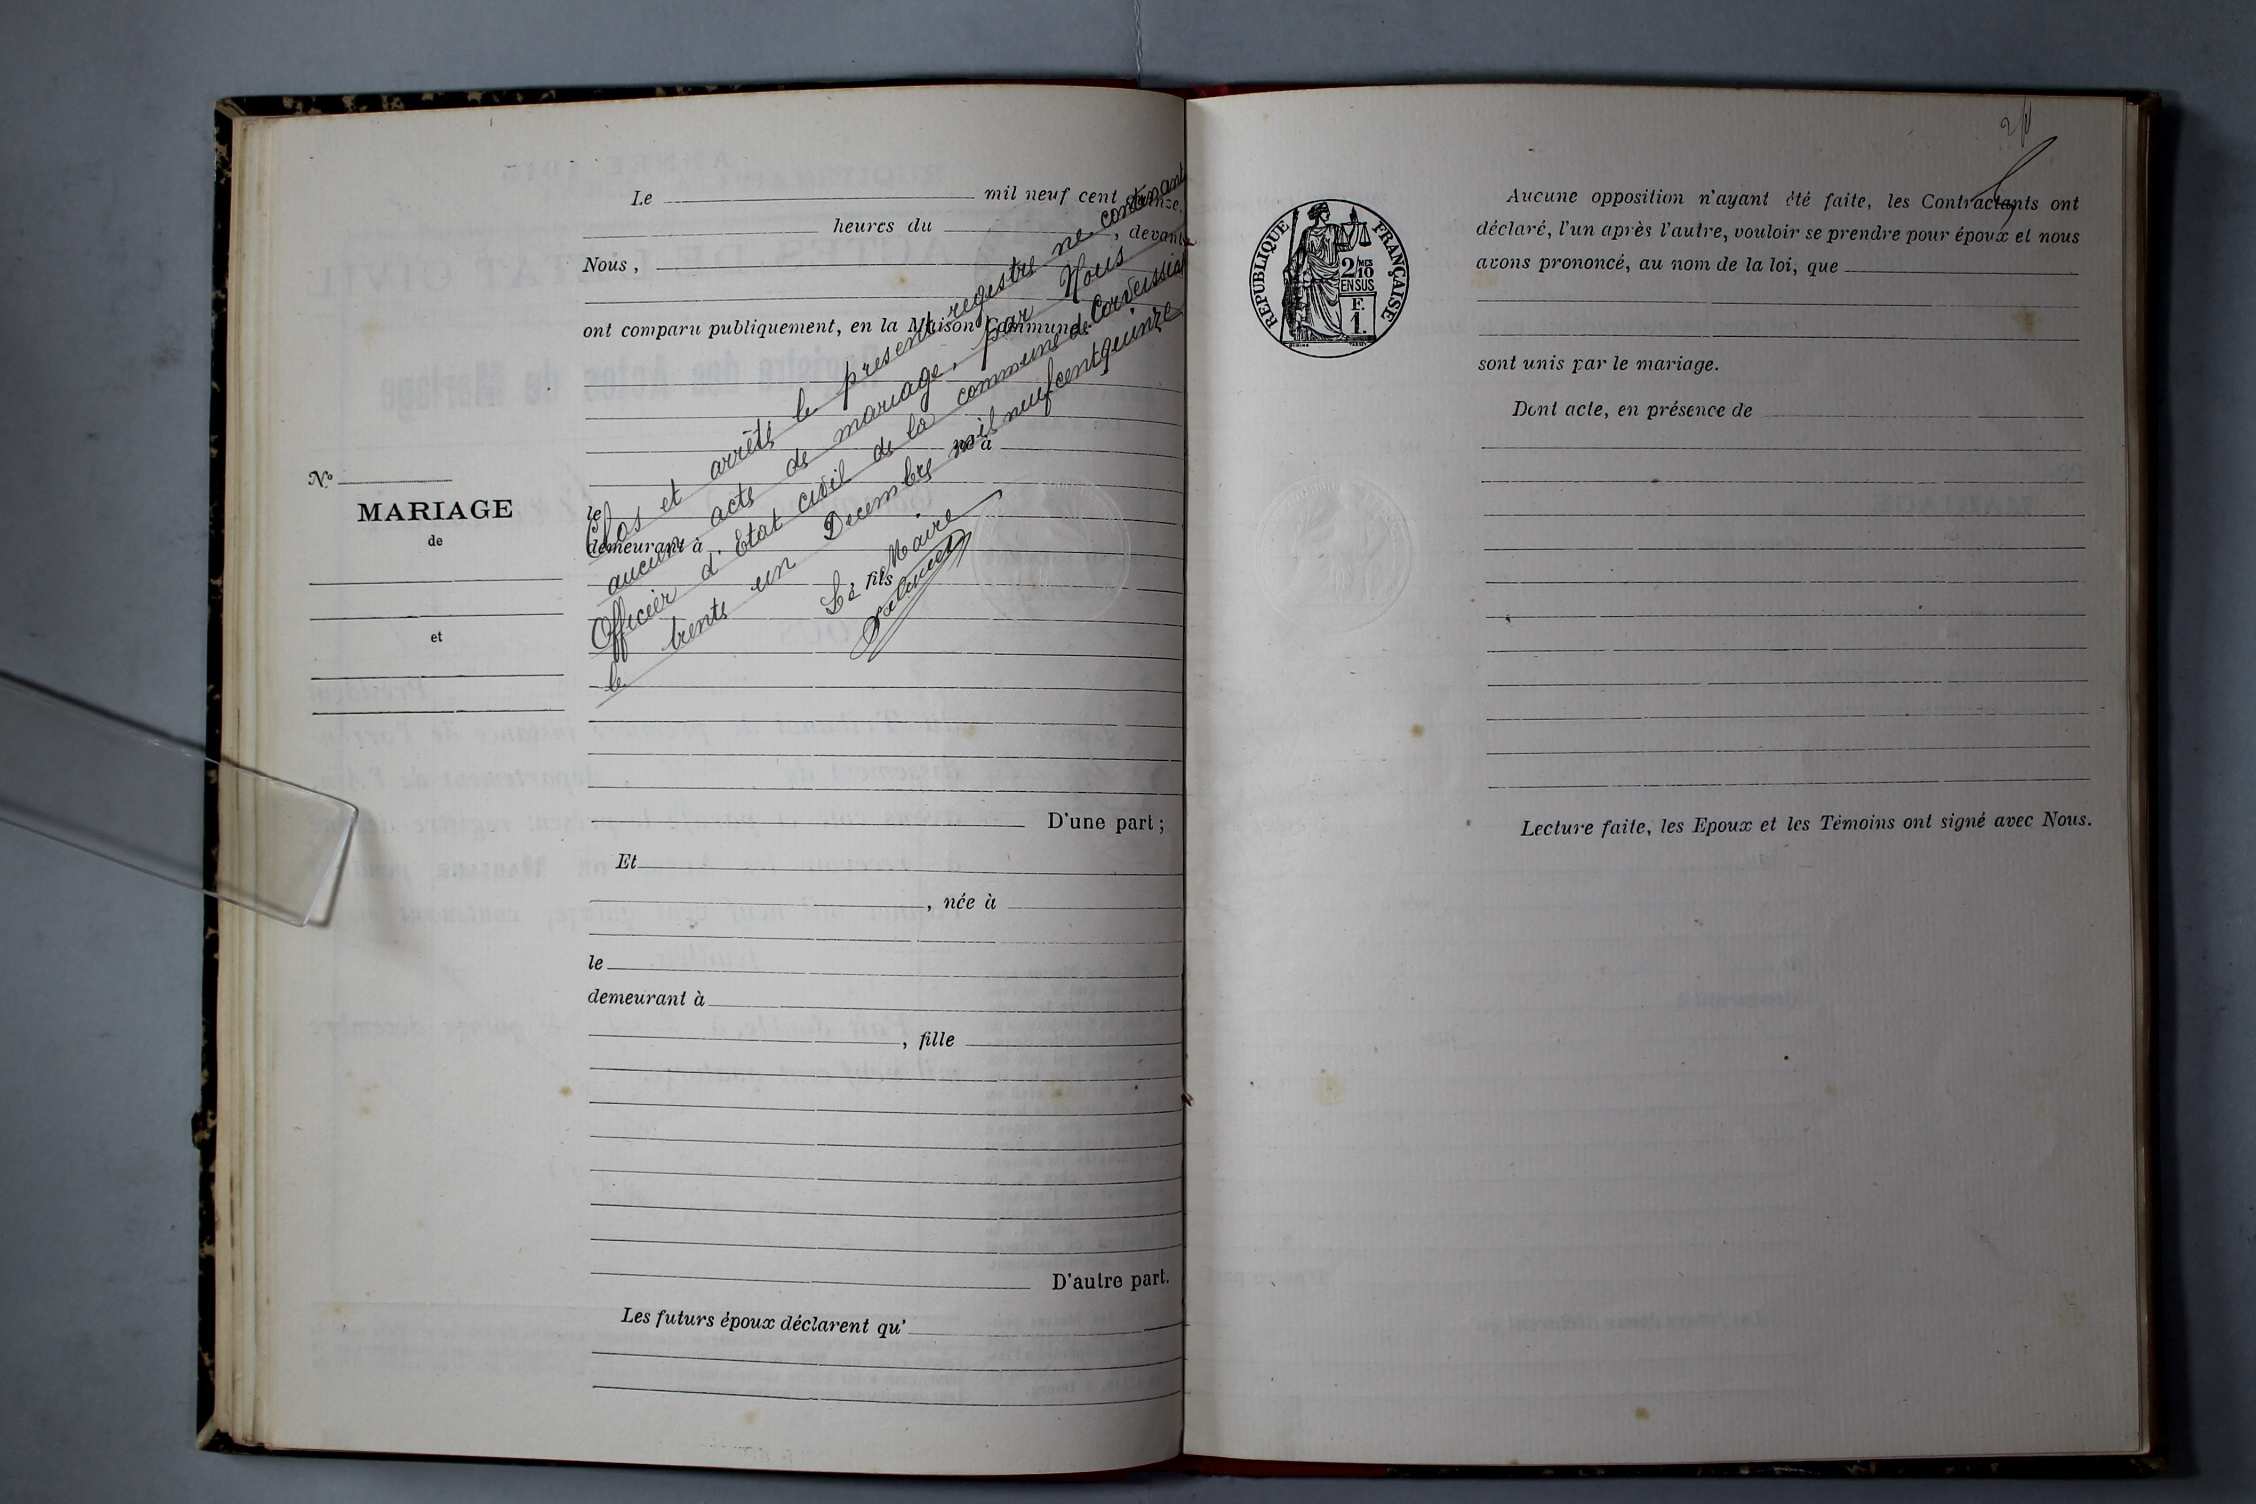 Le mil neuf cent quinze,
heures du , devant
Nous ,
ont comparu publiquement, en la Maison Commune
né à
le
demeurant à
fils
Clos et arrêté le present registre ne contenant
aucun acte de mariage, par Nous
Officier d'Etat civil de la commune de Corveissiat
le trente un Decembre mil neuf cent quinze
Le Maire
No
MARIAGE
de
et
D'une part ;
Et
, née à
le
demeurant à
, fille
D'autre part.
Les futurs époux déclarent qu'
2
REPUBLIQUE FRANÇAISE
2/10 MES
EN SUS
F.
1.
Aucune opposition n'ayant été faite, les Contractants ont
déclaré, l'un après l'autre, vouloir se prendre pour époux et nous
avons prononcé, au nom de la loi, que
sont unis par le mariage.
Dont acte, en présence de
Lecture faite, les Epoux et les Témoins ont signé avec Nous.